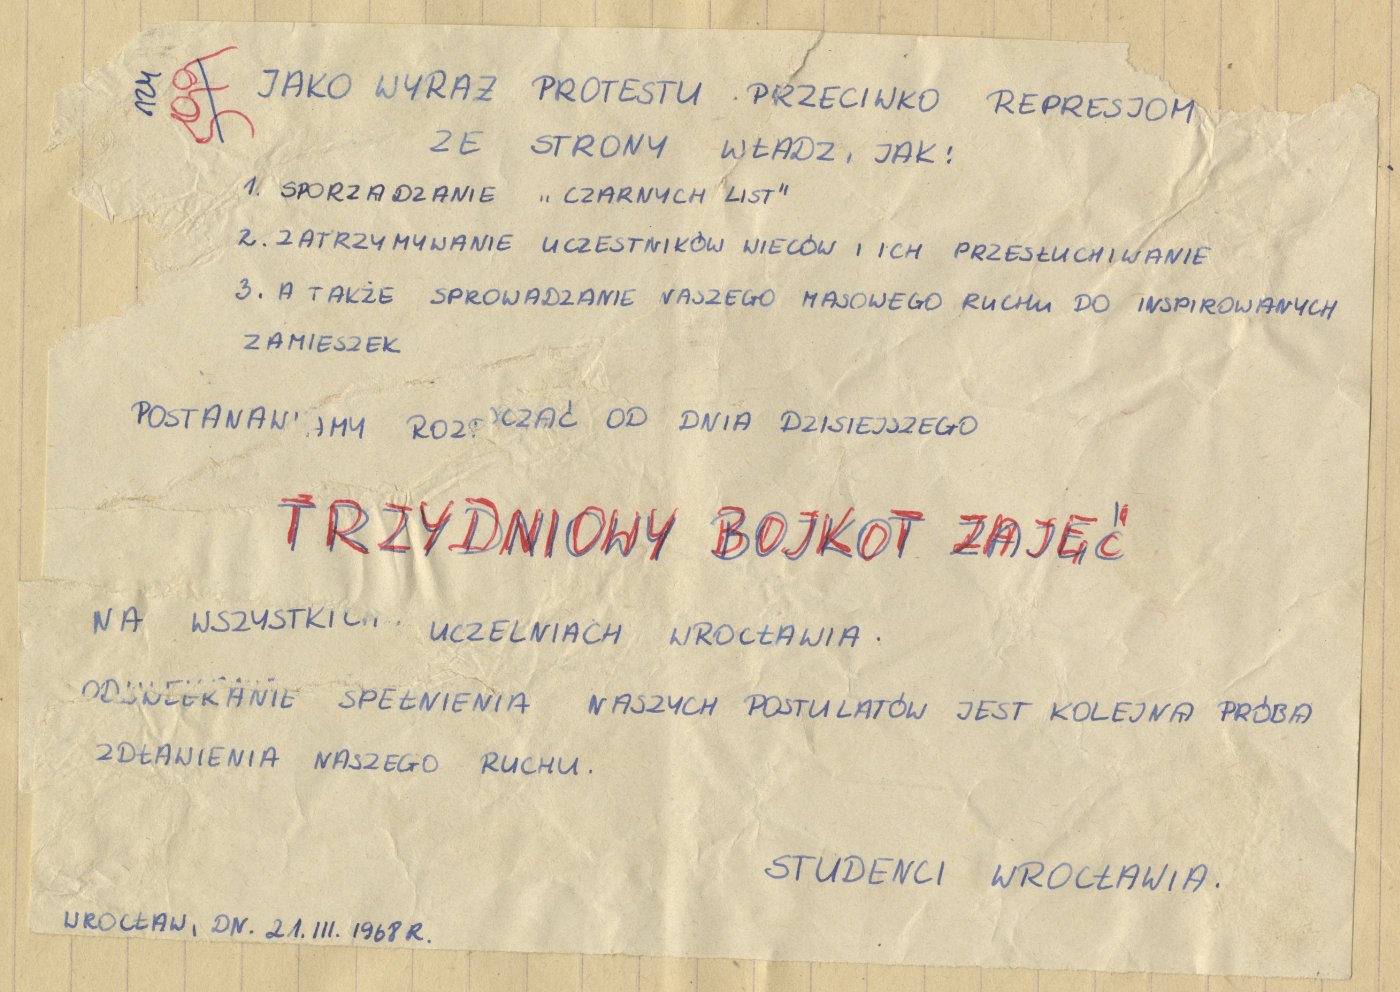 124
JAKO WYRAZ PROTESTU PRZECIWKO REPRESJOM
ZE STRONY WŁADZ, JAK:
1. SPORZADZANIE „CZARNYCH LIST"
2. ZATRZYMYWANIE UCZESTNIKÓW WIECÓW I ICH PRZESŁUCHIWANIE
3. A TAKŻE SPROWADZANIE NASZEGO MASOWEGO RUCHU DO INSPIROWANYCH
ZAMIESZEK
POSTANAWIAMY ROZPOCZĄĆ OD DNIA DZISIEJSZEGO
TRZYDNIOWY BOJKOT ZAJĘĆ
NA WSZYSTKICH UCZELNIACH WROCŁAWIA.
ODWLEKANIE SPEŁNIENIA NASZYCH POSTULATÓW JEST KOLEJNA PRÓBA
ZDŁAWIENIA NASZEGO RUCHU.
STUDENCI WROCŁAWIA.
WROCŁAW, DN. 21.III.1968 R.